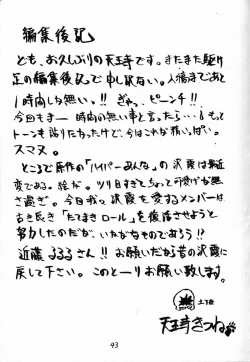 編集後記
ども、お久しぶりの天王寺です。またまた駆け
足の編集後記で申し訳ない。入稿まであと
1時間しな無い。!! ぎゃっ、ピーンチ!!
今回もまー時間の無い事と言ったら…。もっと
トーンも貼りたかったけど、今はこれが精いっぱい。
スマヌ。
ところで原作の「ハイパーあんな」の沢霞は最近
変である。絵が。ツリ目すぎてちょっと可愛げが無
さ過ぎ。今日我々沢霞を愛するメンバーは
古き良き「たてまきロール」を復活させようと
努力したのだが、いかがなものであろう!?
近藤るるるさん!!お願いだから昔の沢霞に
戻して下さい。このとーりお願い致します。
土下座
天王寺きつね
93